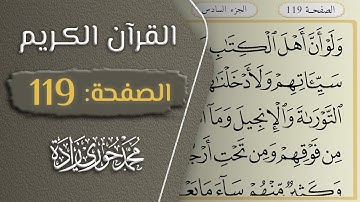 القرآن الكريم
الصفحة: 119
محمد حوري زادة
الجزء السادس
الصفحة 119
وَلَوْ أَنَّ أَهْلَ ٱلْكِتَٰبِ
سَيِّـَٔاتِهِمْ وَلَأَدْخَلْنَٰ
ٱلتَّوْرَىٰةَ وَٱلْإِنجِيلَ وَمَآ
مِن فَوْقِهِمْ وَمِن تَحْتِ أَرْجُ
وَكَثِيرٌ مِّنْهُمْ سَآءَ مَا يَعْ